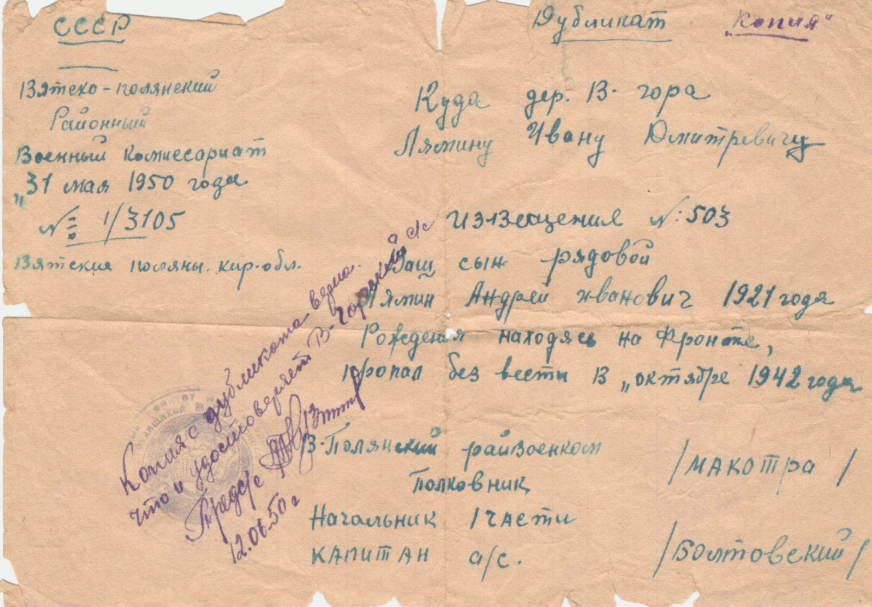 СССР
Дубликат "Копия"
Вятско-полянский
Районный
Военный комиссариат
"31 мая 1950 года
№ 1/3105
Вятские поляны. кир. обл.
Куда дер. В. гора
Лямину Ивану Дмитревичу
Извещения №: 503
Ваш сын рядовой
Лямин Андрей иванович 1921 года
Рождения находясь на Фронте,
пропал без вести в „октябре 1942 года
В-Полянский райвоенком
Полковник /МАКОТРА/
Начальник 1 части
КАПИТАН а/с. /Болтовский/
Копия с дубликата верна.
что и удостоверяет В-Горский с/с
Предс/с
12.06.50 г